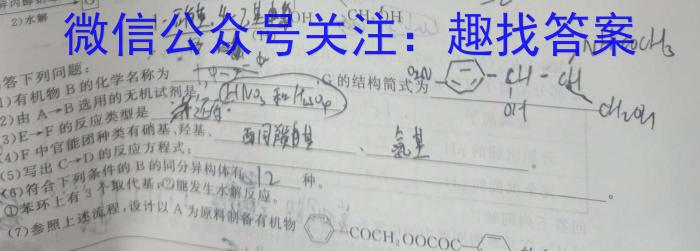 2)水解
CH₂OH
微信公众号关注：趣找答案
NHCOCH₃
答下列问题：
(1)有机物B的化学名称为 ，G的结构简式为 O₂N CH-CH OH CH₂OH
(2)由A→B选用的无机试剂是 HNO₃和H₂SO₄
(3)E→F的反应类型是 还原
(4)F中官能团种类有硝基、羟基、 、 氨基 。
(5)写出C→D的反应方程式： 。
(6)符合下列条件的B的同分异构体有 12 种。
①苯环上有3个取代基；②能发生水解反应。
(7)参照上述流程，设计以A为原料制备有机物 COCH₂OOCOC